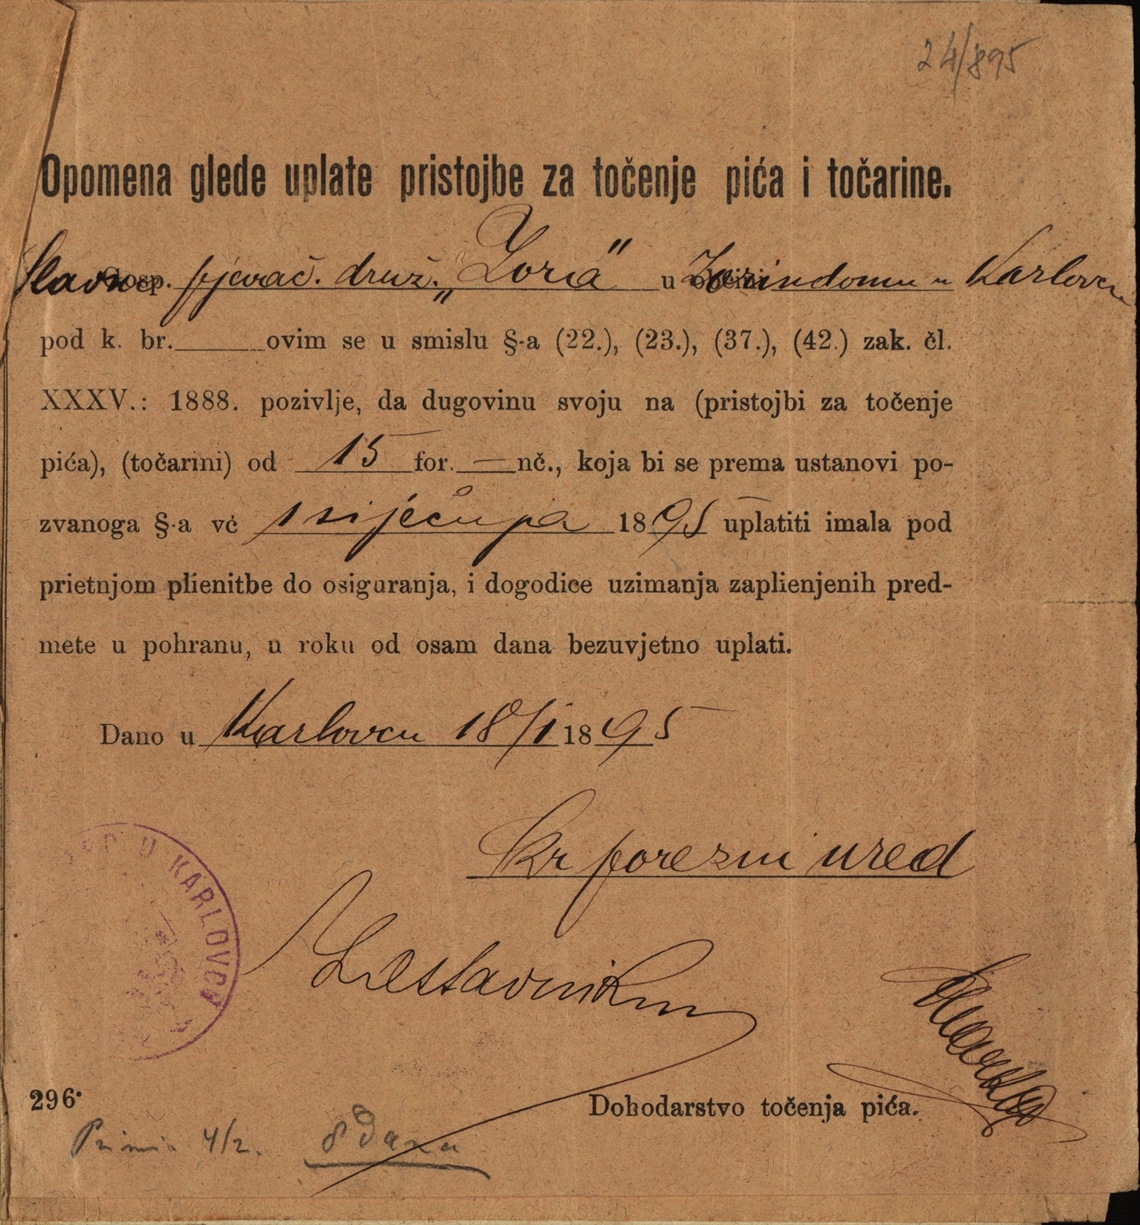 24/895
Opomena glede uplate pristojbe za točenje pića i točarine.
Slavn Gosp. pjevač. druž. „Zora“ u općini Zorindomu u Karlovcu
pod k. br. ovim se u smislu §-a (22.), (23.), (37.), (42.) zak. čl.
XXXV.: 1888. pozivlje, da dugovinu svoju na (pristojbi za točenje
pića), (točarini) od 15 for. — nč., koja bi se prema ustanovi po-
zvanoga §-a vć 1 siječnja 1895 uplatiti imala pod
prietnjom plienitbe do osiguranja, i dogodice uzimanja zaplienjenih pred-
mete u pohranu, u roku od osam dana bezuvjetno uplati.
Dano u Karlovcu 18/I 1895
Kr porezni ured
U KARLOVCU
296.
Dohodarstvo točenja pića.
Primio 4/2. 8 dana